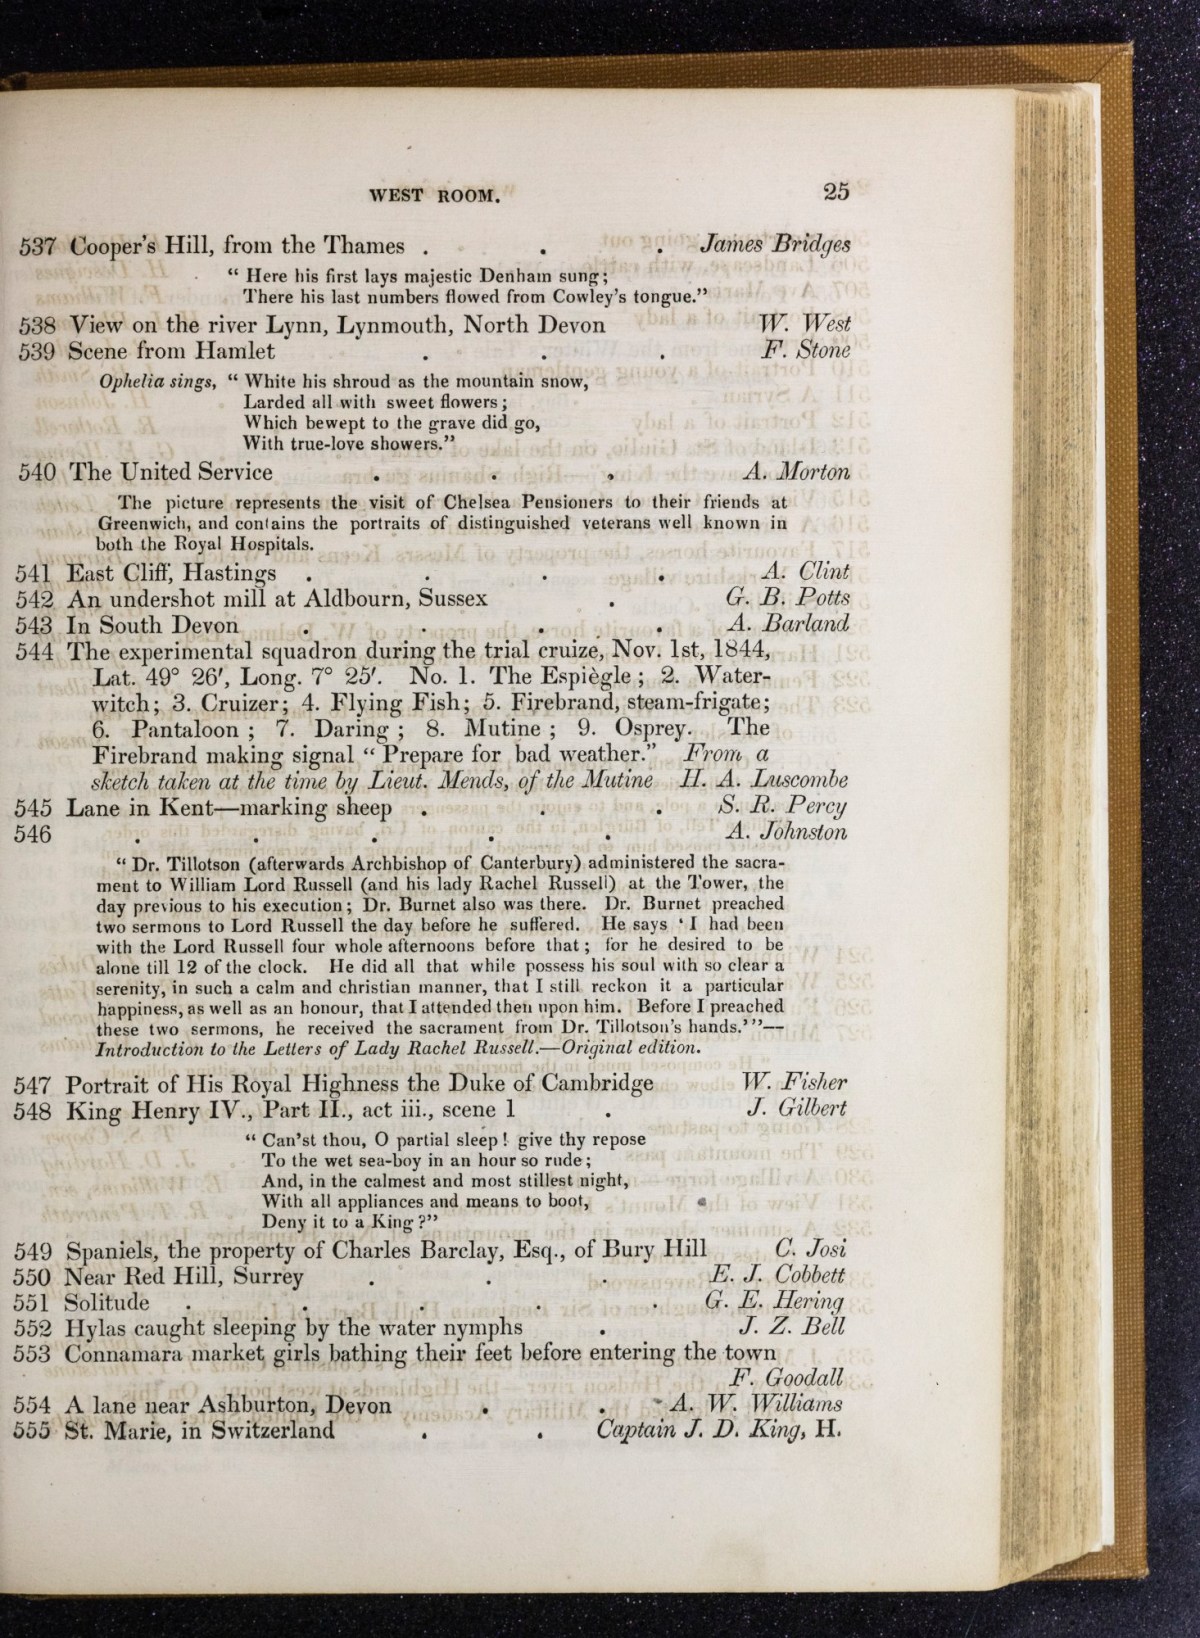 WEST ROOM. 25
537 Cooper's Hill, from the Thames . . . James Bridges
“ Here his first lays majestic Denham sung;
There his last numbers flowed from Cowley's tongue.”
538 View on the river Lynn, Lynmouth, North Devon W. West
539 Scene from Hamlet . . . F. Stone
Ophelia sings, “ White his shroud as the mountain snow,
Larded all with sweet flowers;
Which bewept to the grave did go,
With true-love showers.”
540 The United Service . . . A. Morton
The picture represents the visit of Chelsea Pensioners to their friends at
Greenwich, and contains the portraits of distinguished veterans well known in
both the Royal Hospitals.
541 East Cliff, Hastings . . . . A. Clint
542 An undershot mill at Aldbourn, Sussex . G. B. Potts
543 In South Devon . . . . A. Barland
544 The experimental squadron during the trial cruize, Nov. 1st, 1844,
Lat. 49° 26′, Long. 7° 25′. No. 1. The Espiègle; 2. Water-
witch; 3. Cruizer; 4. Flying Fish; 5. Firebrand, steam-frigate;
6. Pantaloon; 7. Daring; 8. Mutine; 9. Osprey. The
Firebrand making signal “ Prepare for bad weather.” From a
sketch taken at the time by Lieut. Mends, of the Mutine H. A. Luscombe
545 Lane in Kent—marking sheep . . . S. R. Percy
546 . . . . . A. Johnston
“ Dr. Tillotson (afterwards Archbishop of Canterbury) administered the sacra-
ment to William Lord Russell (and his lady Rachel Russell) at the Tower, the
day previous to his execution; Dr. Burnet also was there. Dr. Burnet preached
two sermons to Lord Russell the day before he suffered. He says ‘ I had been
with the Lord Russell four whole afternoons before that; for he desired to be
alone till 12 of the clock. He did all that while possess his soul with so clear a
serenity, in such a calm and christian manner, that I still reckon it a particular
happiness, as well as an honour, that I attended then upon him. Before I preached
these two sermons, he received the sacrament from Dr. Tillotson's hands.’”—
Introduction to the Letters of Lady Rachel Russell.—Original edition.
547 Portrait of His Royal Highness the Duke of Cambridge W. Fisher
548 King Henry IV., Part II., act iii., scene 1 . J. Gilbert
“ Can'st thou, O partial sleep! give thy repose
To the wet sea-boy in an hour so rude;
And, in the calmest and most stillest night,
With all appliances and means to boot,
Deny it to a King?”
549 Spaniels, the property of Charles Barclay, Esq., of Bury Hill C. Josi
550 Near Red Hill, Surrey . . . E. J. Cobbett
551 Solitude . . . . . G. E. Hering
552 Hylas caught sleeping by the water nymphs . J. Z. Bell
553 Connamara market girls bathing their feet before entering the town
F. Goodall
554 A lane near Ashburton, Devon . . A. W. Williams
555 St. Marie, in Switzerland . . Captain J. D. King, H.